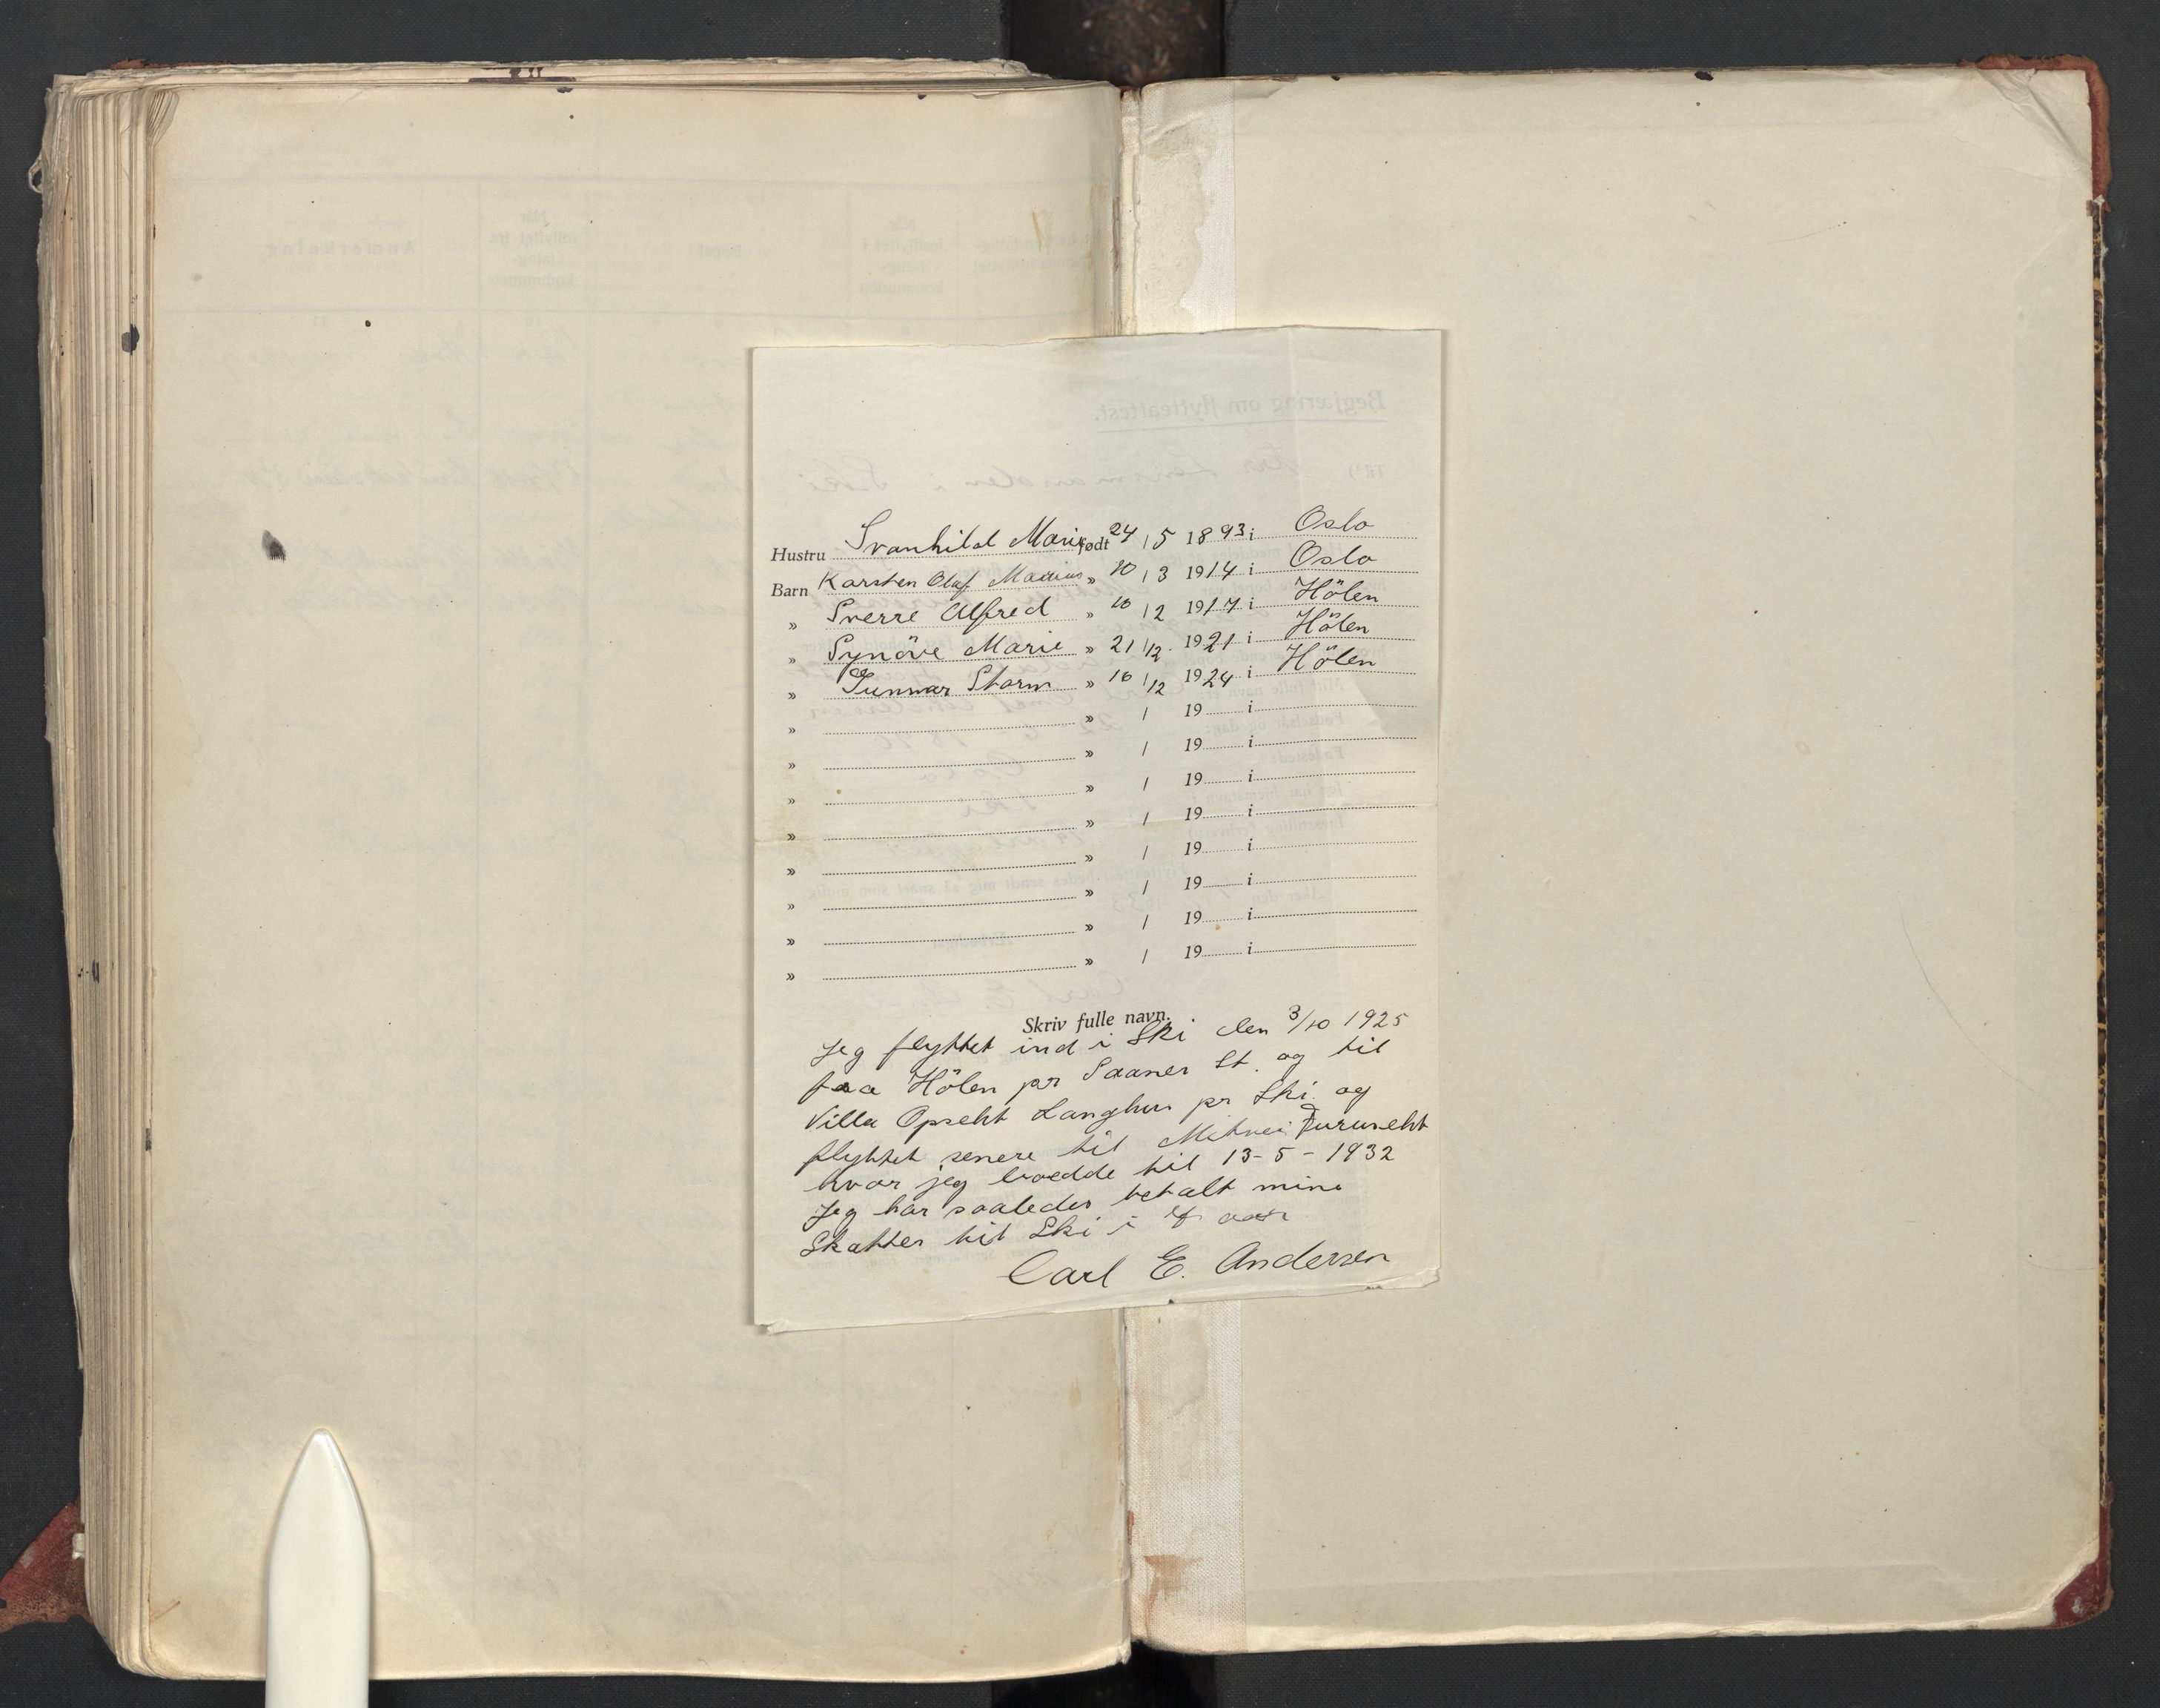 Hustru Svanhild Marie født 24/5 1893 i Oslo
Barn Karsten Olaf Marius » 10/3 1914 i Oslo
» Sverre Alfred » 10/2 1917 i Hölen
» Synöve Marie » 21/12 1921 i Hölen
» Gunnar Storm » 16/12 1924 i Hölen
» » / 19 i
» » / 19 i
» » / 19 i
» » / 19 i
» » / 19 i
» » / 19 i
» » / 19 i
» » / 19 i
Skriv fulle navn.
Jeg flyttet ind i Ski den 3/10 1925
fra Hölen pr Saaner St. og til
Villa Opseht Langhus pr Ski og
flyttet senere til Mitvei Furuseht
hvor jeg boedde til 13-5-1932
Jeg har saaledes betalt mine
Skatter til Ski i aar
Carl E. Andersen